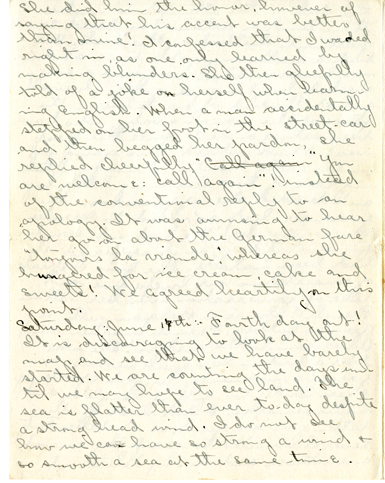 She did him the honor, however of
saying that his accent was better
than mine! I confessed that I waded
right in, as one only learned by
making blunders. She then gleefully
told of a joke on herself when learn-
ing English. When a man accidentally
stepped on her foot in the street-car
and then begged her pardon, she
replied cheerfully "Call again" "You
are welcome: call again". Instead
of the conventional reply to an
apology. It was amusing to hear
her go on about the German fare
'toujours la viande', whereas she
hungered for ice cream, cake and
sweets! We agreed heartily on this
point.
Saturday, June 17th:- Fourth day out!
It is discouraging to look at the
map and see that we have barely
started. We are counting the days un-
til we may hope to see land. The
sea is flatter than ever to-day despite
a strong head wind. I do not see
how we can have so strong a wind &
so smooth a sea at the same time.